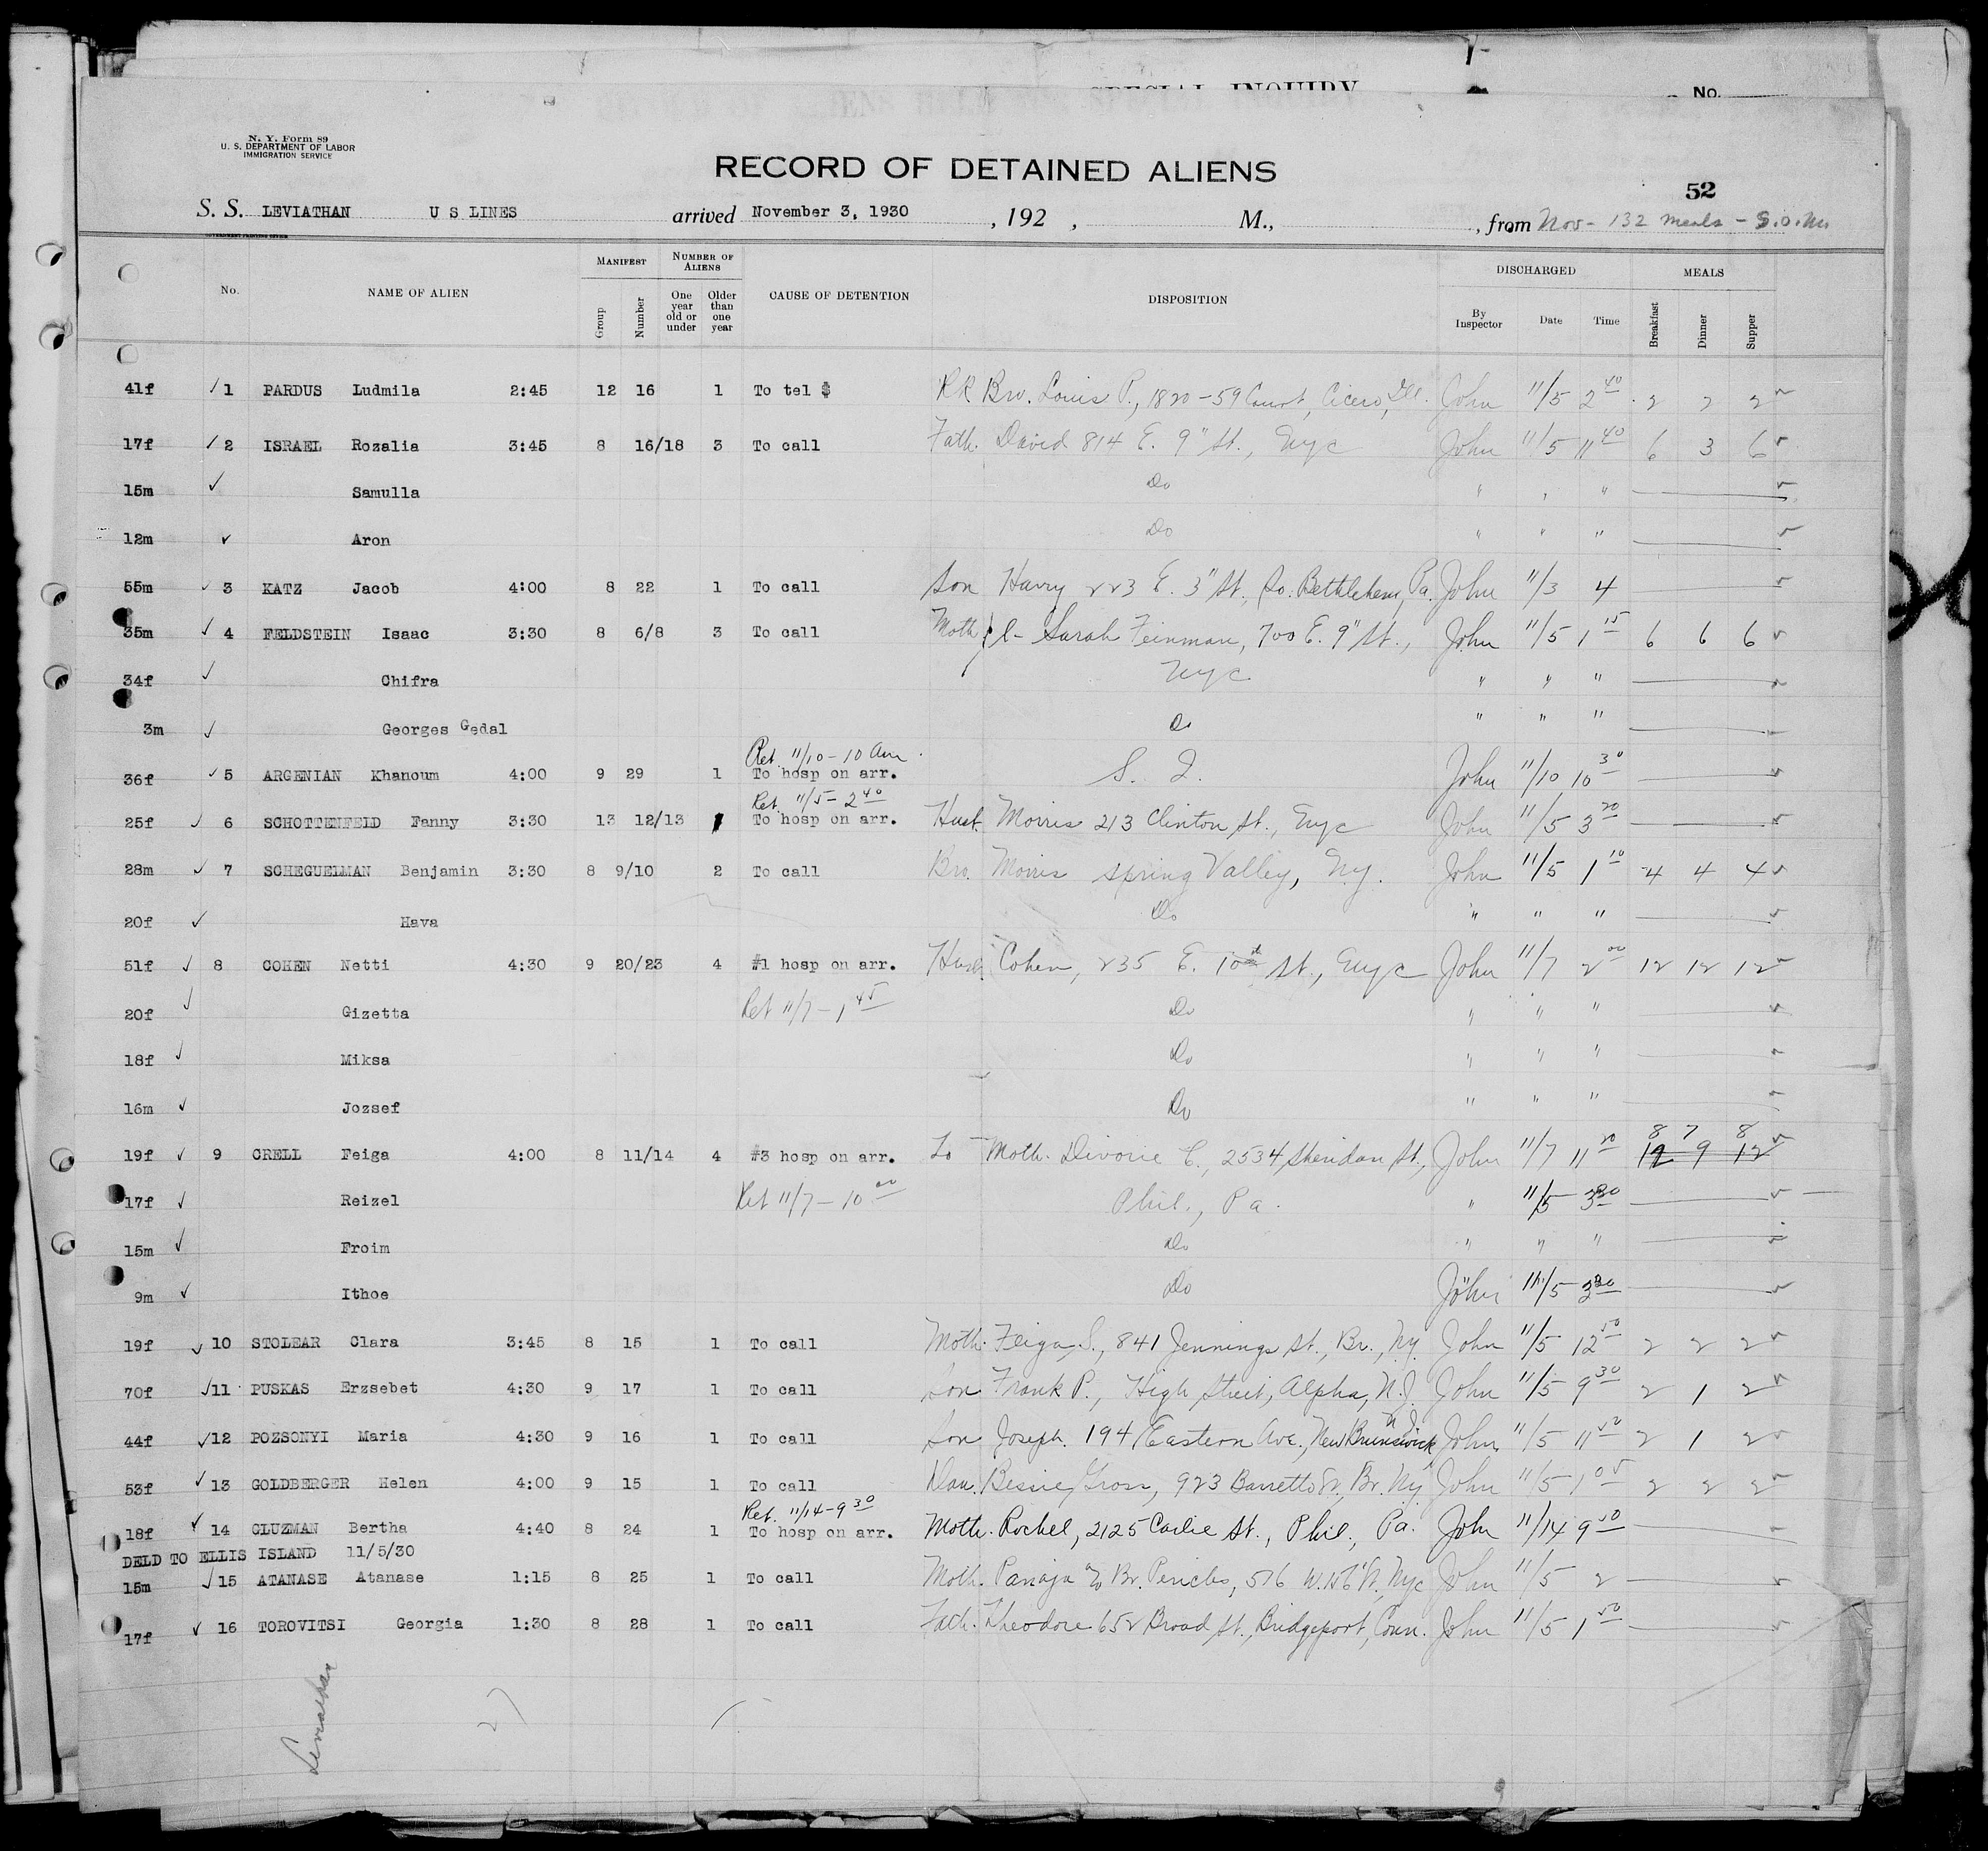 SPECIAL INQUIRY
No.
N. Y. Form 89
U. S. DEPARTMENT OF LABOR
IMMIGRATION SERVICE
RECORD OF DETAINED ALIENS
52
S. S. LEVIATHAN U S LINES arrived November 3, 1930 , 192 , M., , from Nov - 132 meals - S.O.M.
GOVERNMENT PRINTING OFFICE
No. NAME OF ALIEN MANIFEST Group Number NUMBER OF ALIENS One year old or under Older than one year CAUSE OF DETENTION DISPOSITION DISCHARGED By Inspector Date Time MEALS Breakfast Dinner Supper
41f ✓ 1 PARDUS Ludmila 2:45 12 16 1 To tel $ RR Bro. Louis P., 1820-59 Court, Cicero, Ill. John 11/5 2 40 2 2 2
17f ✓ 2 ISRAEL Rozalia 3:45 8 16/18 3 To call Fath. David 814 E. 9" St., Nyc John 11/5 11 40 6 3 6
15m ✓ Samulla Do " " "
12m ✓ Aron Do " " "
55m ✓ 3 KATZ Jacob 4:00 8 22 1 To call Son Harry 223 E. 3" St., So. Bethlehem, Pa. John 11/3 4
35m ✓ 4 FELDSTEIN Isaac 3:30 8 6/8 3 To call Moth-l- Sarah Feinman, 700 E. 9" St., John 11/5 1 15 6 6 6
34f ✓ Chifra Nyc " " "
3m ✓ Georges Gedal Do " " "
Ret. 11/10 - 10 Am
36f ✓ 5 ARGENIAN Khanoum 4:00 9 29 1 To hosp on arr. S. I. John 11/10 10 30
Ret. 11/5 - 2 40
25f ✓ 6 SCHOTTENFELD Fanny 3:30 13 12/13 1 To hosp on arr. Husb. Morris 213 Clinton St., Nyc John 11/5 3 20
28m ✓ 7 SCHEGUELMAN Benjamin 3:30 8 9/10 2 To call Bro. Morris Spring Valley, N.Y. John 11/5 1 10 4 4 4
20f ✓ Hava Do " " "
51f ✓ 8 COHEN Netti 4:30 9 20/23 4 #1 hosp on arr. Husb. Cohen, 235 E. 10 St., Nyc John 11/7 2 00 12 12 12
20f ✓ Gizetta Ret 11/7 - 1 45 Do " " "
18f ✓ Miksa Do " " "
16m ✓ Jozsef Do " " "
8 7 8
19f ✓ 9 CRELL Feiga 4:00 8 11/14 4 #3 hosp on arr. To Moth. Divorie C., 2534 Sheridan St., John 11/7 11 20 12 9 12
17f ✓ Reizel Ret 11/7 - 10 00 Phil., Pa. " 11/5 3 30
15m ✓ Froim Do " " "
9m ✓ Ithoe Do John 11/5
19f ✓ 10 STOLEAR Clara 3:45 8 15 1 To call Moth. Feiga S., 841 Jennings St., Br., Ny John 11/5 12 50 2 2 2
70f ✓ 11 PUSKAS Erzsebet 4:30 9 17 1 To call Son Frank P., High Street, Alpha, N.J. John 11/5 9 30 2 1 2
44f ✓ 12 POZSONYI Maria 4:30 9 16 1 To call Son Joseph. 194 Eastern Ave., New Brunswick N.J. John 11/5 11 50 2 1 2
53f ✓ 13 GOLDBERGER Helen 4:00 9 15 1 To call Dau. Bessie Gross, 923 Barretto St., Br. Ny John 11/5 1 05 2 2 2
Ret. 11/14 - 9 30
18f ✓ 14 GLUZMAN Bertha 4:40 8 24 1 To hosp on arr. Moth. Rochel, 2125 St., Phil., Pa. John 11/14 9 50
DELD TO ELLIS ISLAND 11/5/30
15m ✓ 15 ATANASE Atanase 1:15 8 25 1 To call Moth. c/o Br. Pericles, 516 W. 156 St. Nyc John 11/5 2
17f ✓ 16 TOROVITSI Georgia 1:30 8 28 1 To call Fath. Theodore 652 Broad St., Bridgeport, Conn. John 11/5 1 50
Leviathan